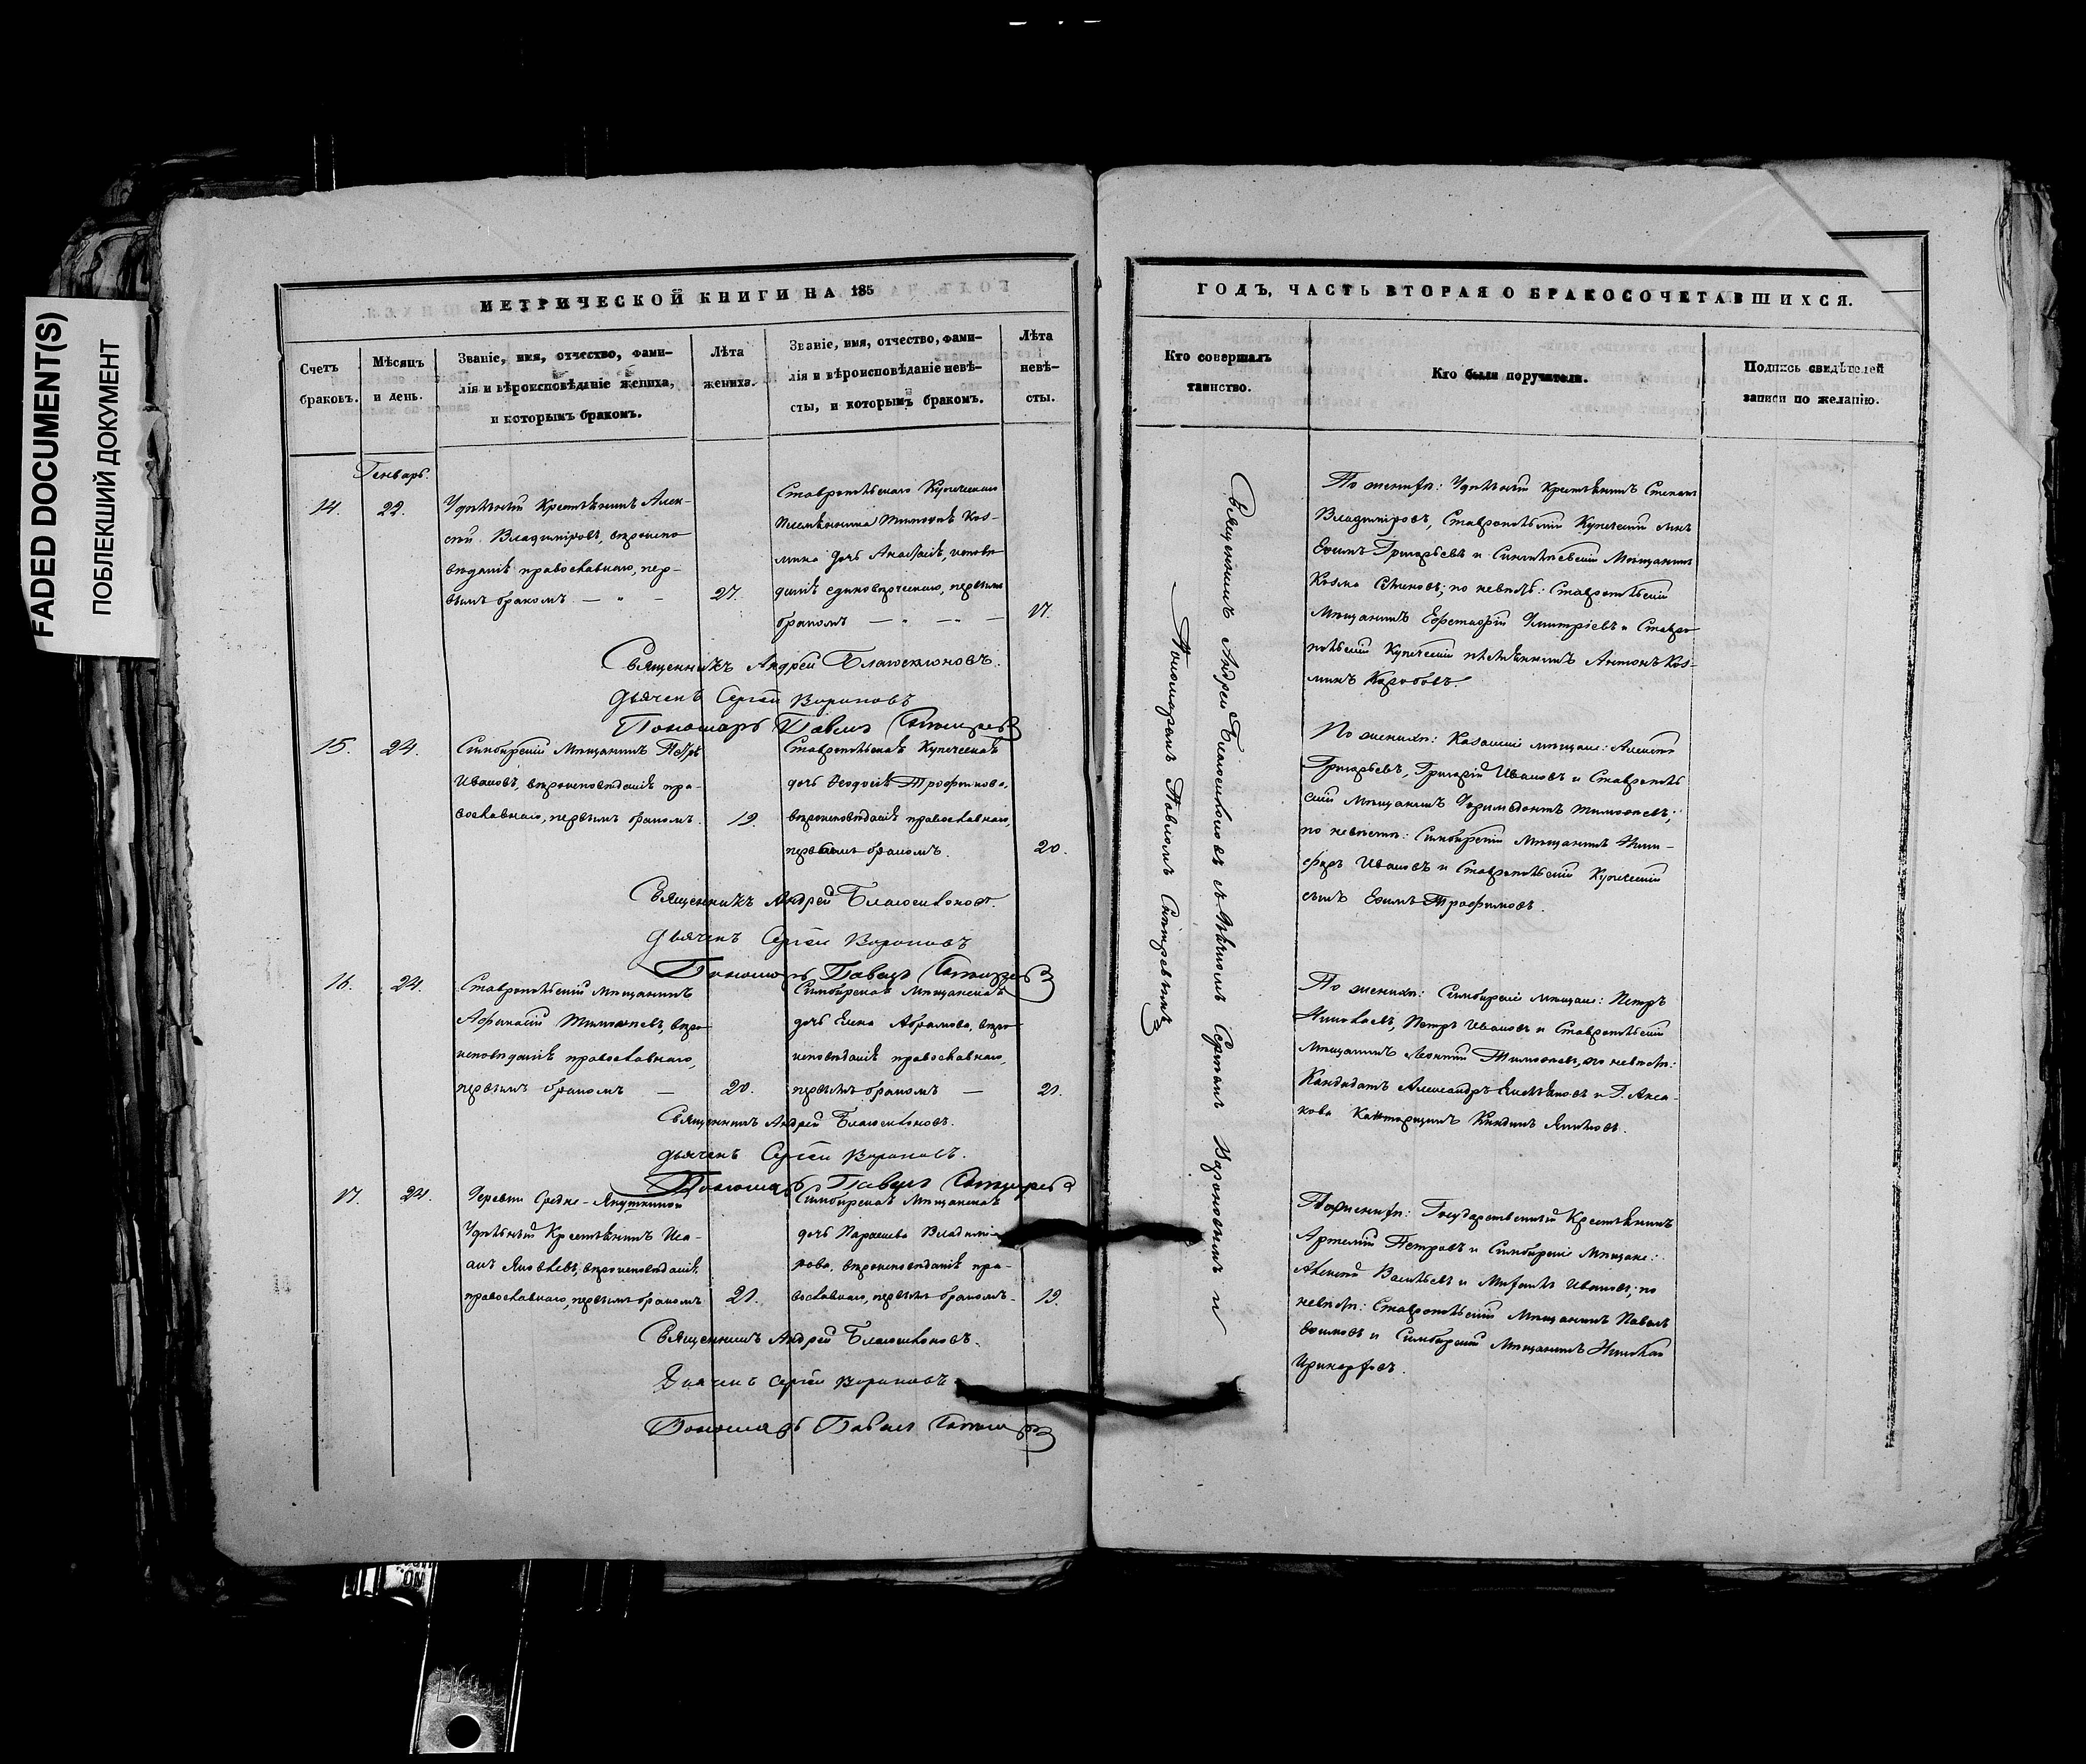 FADED DOCUMENT(S)
ПОБЛЕКШИЙ ДОКУМЕНТ
МЕТРИЧЕСКОЙ КНИГИ НА 185
Счетъ браковъ.
Мѣсяцъ и день.
Званіе, имя, отчество, фами-
лія и вѣроисповѣданіе жениха,
и которымъ бракомъ.
Лѣта
жениха.
Званіе, имя, отчество, фами-
лія и вѣроисповѣданіе невѣ-
сты, и которымъ бракомъ.
Лѣта
невѣ-
сты.
Генварь.
14.
22.
Удѣльный Крестьянинъ Алек-
сѣй Владиміровъ, вѣроиспо
вѣданія православнаго, пер-
вымъ бракомъ
27.
Ставропольскаго Купеческаго
племянника Кос-
мина дочь исповѣ
данія единовѣрческаго, первымъ
бракомъ
17.
Священникъ Андрей Благосклоновъ.
дьячекъ Сергѣй Вороновъ
Пономарь Павелъ
15.
24.
Симбирскій Мѣщанинъ Петръ
Ивановъ, вѣроисповѣданія пра-
вославнаго, первымъ бракомъ.
19.
Ставропольская Купеческая
дочь Ѳеодосія Трофимова,
вѣроисповѣданія православнаго,
первымъ бракомъ.
20.
Священникъ Андрей Благосклоновъ.
дьячекъ Сергѣй Вороновъ
Пономарь Павелъ
16.
24.
Ставропольскій Мѣщанинъ
Афанасій Тимофеевъ, вѣро
исповѣданія православнаго,
первымъ бракомъ
20.
Симбирская Мѣщанская
дочь Елена Абрамова, вѣро
исповѣданія православнаго,
первымъ бракомъ
21.
Священникъ Андрей Благосклоновъ.
дьячекъ Сергѣй Вороновъ.
Пономарь Павелъ
17.
24.
Деревни Средне-Якушкиной
Удѣльный Крестьянинъ Иса-
акъ Яковлевъ, вѣроисповѣданія
православнаго, первымъ бракомъ
21.
Симбирская Мѣщанская
дочь Параскева Владимі-
рова, вѣроисповѣданія пра-
вославнаго, первымъ бракомъ
19.
Священникъ Андрей Благосклоновъ.
Дьячекъ Сергѣй Вороновъ
Пономарь Павелъ
ГОДЪ, ЧАСТЬ ВТОРАЯ О БРАКОСОЧЕТАВШИХСЯ.
Кто совершалъ
таинство.
Кто были поручители.
Подпись свидѣтелей
записи по желанію.
Священникъ Андрей Благосклоновъ съ дьячкомъ Сергѣемъ Вороновымъ и
Пономаремъ Павломъ
По женихѣ: Удѣльный Крестьянинъ Степанъ
Владиміровъ, Ставропольскій Купеческій сынъ
Ефимъ Григорьевъ и Мѣщанинъ
Косма по невѣстѣ: Ставропольскій
Мѣщанинъ Дмитріевъ и Ставро
польскій Купеческій племянникъ Антонъ Кос-
минъ Коробовъ.
По женихѣ: Казанскіе мѣщане: Алексѣй
Григорьевъ, Григорій Ивановъ и Ставрополь
скій Мѣщанинъ Тимофеевъ;
по невѣстѣ: Симбирскій Мѣщанинъ Ники-
форъ Ивановъ и Ставропольскій Купеческій
сынъ Ефимъ Трофимовъ.
По женихѣ: Симбирскіе мѣщане: Петръ
Николаевъ, Петръ Ивановъ и Ставропольскій
Мѣщанинъ Леонтій Тимофеевъ, по невѣстѣ:
Кандидатъ Александръ и Г. Акса-
кова
По женихѣ: Государственный Крестьянинъ
Артемій Петровъ и Симбирскіе Мѣщане:
Алексѣй Васильевъ и Ивановъ; по
невѣстѣ: Ставропольскій Мѣщанинъ Павелъ
и Симбирскій Мѣщанинъ Николай